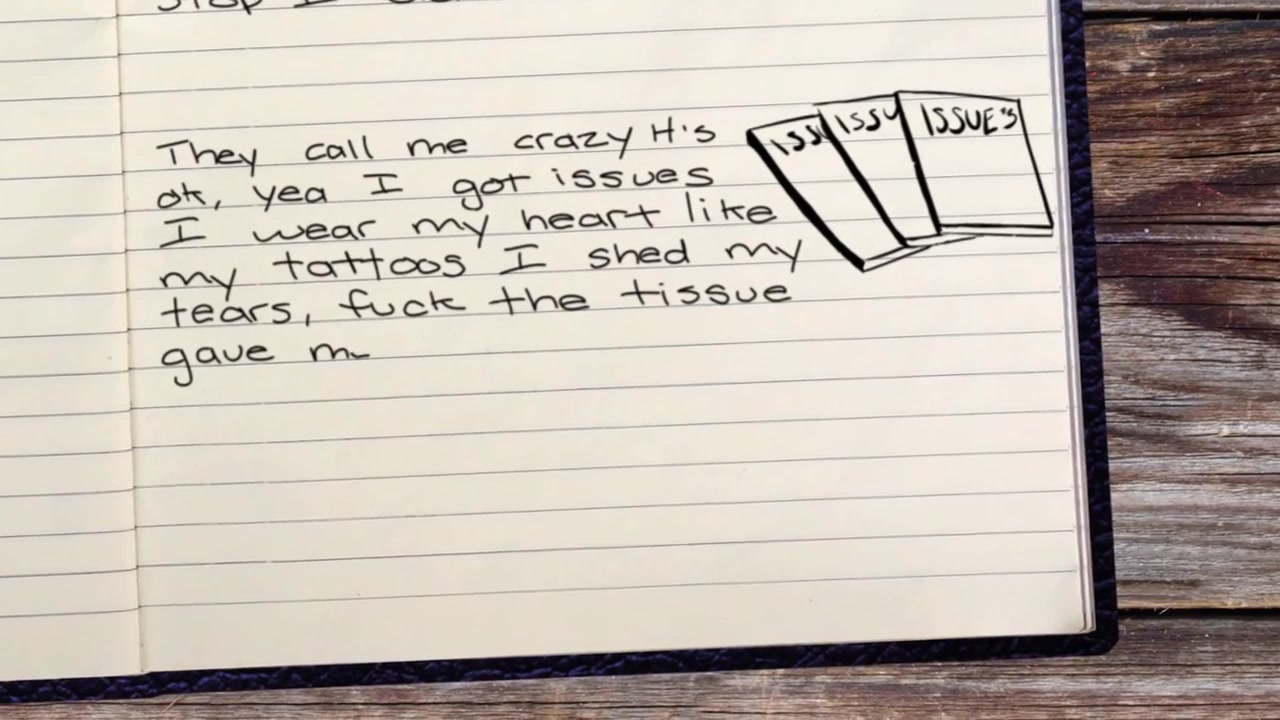 Stop I
They call me crazy it's
ok, yea I got issues
I wear my heart like
my tattoos I shed my
tears, fuck the tissue
gave m
ISSU
ISSU
ISSUE'S